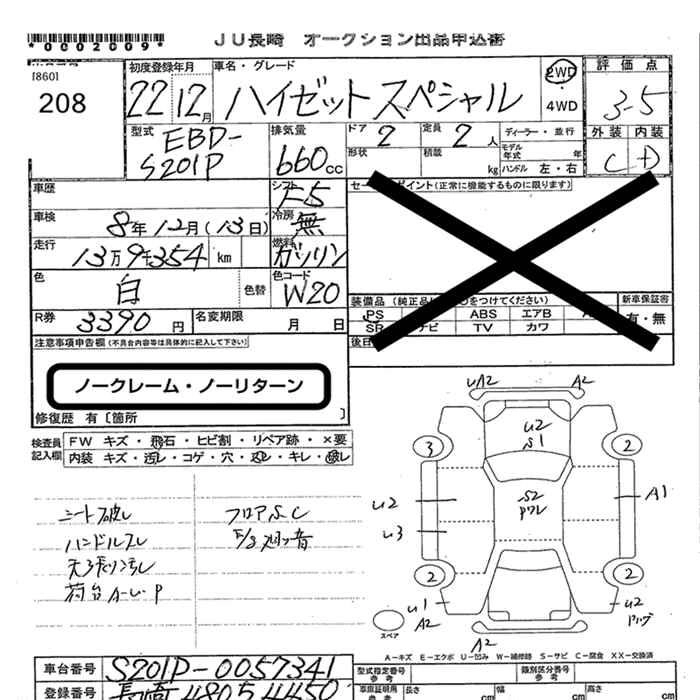 *0002009*
JU長崎 オークション出品申込書
[860]
208
初度登録年月
22年12月
車名・グレード
ハイゼットスペシャル
2WD
4WD
評価点
3.5
型式
EBD-
S201P
排気量
660cc
ドア
2
定員
2人
形状
積載
kg
ディーラー・並行
モデル年式
年
ハンドル 左・右
外装 内装
C D
車歴
シフト
F5
車検
8年12月(13日)
冷房
無
走行
13万9千354 km
燃料
ガソリン
色
白
色替
色コード
W20
R券
3390円
名変期限
月 日
ポイント(正常に機能するものに限ります)
新車保証書
有・無
PS
ABS
エアB
SR
ナビ
TV
カワ
後日
注意事項申告欄(不具合内容等は具体的に記入して下さい)
ノークレーム・ノーリターン
修復歴 有〔箇所 〕
検査員
記入欄
FW キズ・飛石・ヒビ割・リペア跡・×要
内装 キズ・汚レ・コゲ・穴・スレ・キレ・破レ
シート破レ
ハンドルスレ
天張り汚レ
荷台A-U-P
フロアS.C
uA2
A2
u2
S1
3
2
u2
S2
A1
u3
2
2
u1
A2
u2
A2
スペア
A-キズ E-エクボ U-凹み W-補修跡 S-サビ C-腐食 XX-交換済
車台番号
S201P-0057341
登録番号
長崎 480 5 4450
型式指定番号
類別区分番号
参考
参考
車庫証明用
参考
長さ
cm
幅
cm
高さ
cm